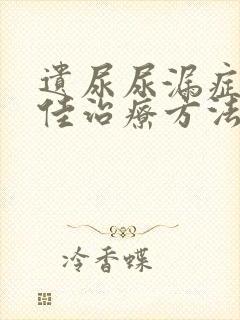 遺尿尿漏症
佳治療方法
冷香蝶